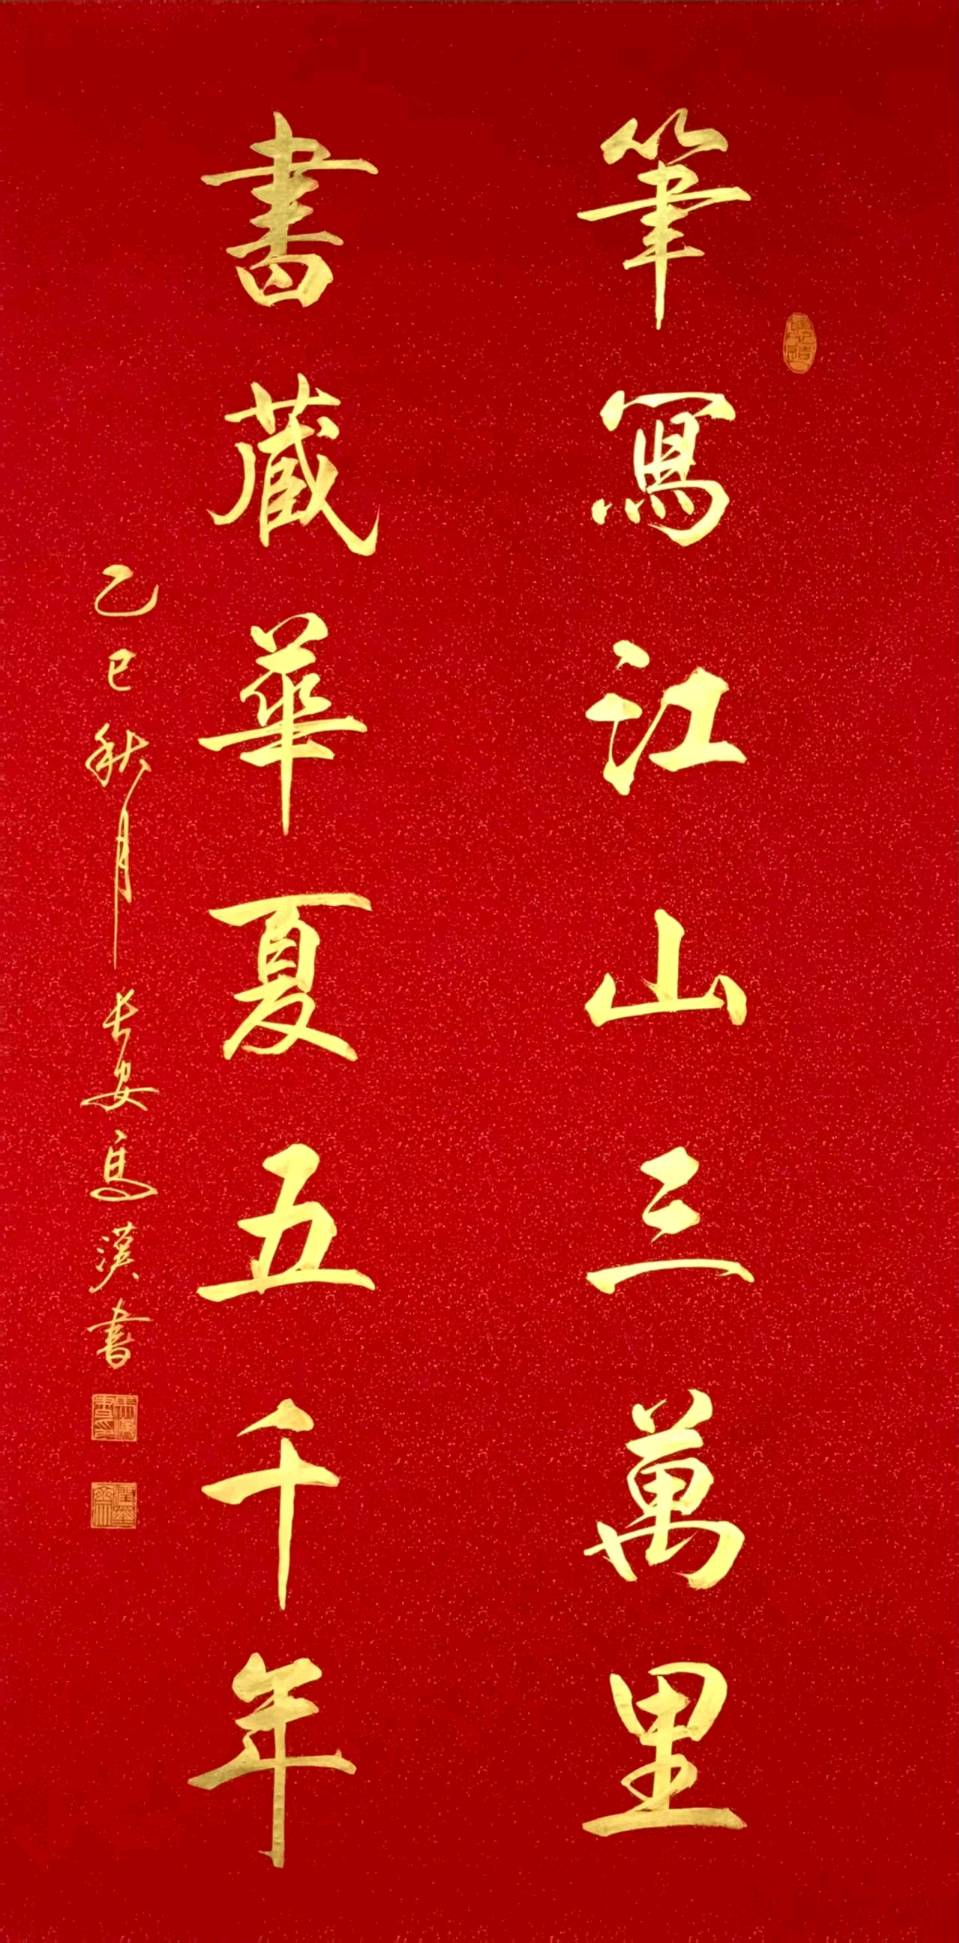 筆寫江山三萬里
書藏華夏五千年
乙巳秋月長安馬漢書